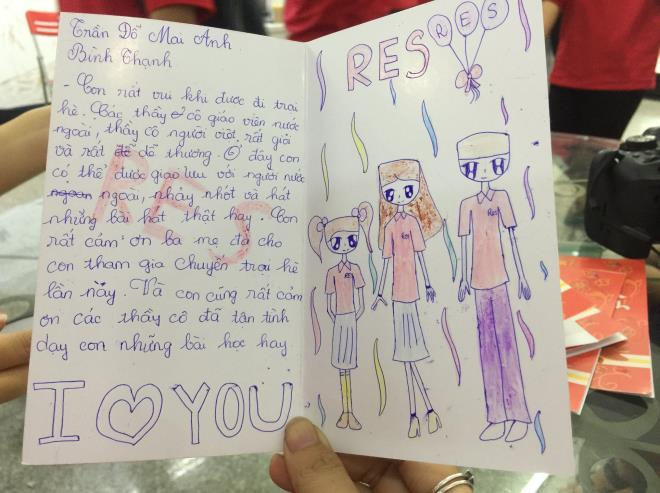 Trần Đỗ Mai Anh
Bình Thạnh
- Con rất vui khi được đi trại
hè. Các thầy cô giáo viên nước
ngoài, thầy cô người việt rất giỏi
và rất dễ thương. Ở đây con
có thể được giao lưu với người nước
ngoài, nhảy nhót và hát
những bài hát thật hay. Con
rất cám ơn ba mẹ đã cho
con tham gia chuyến trại hè
lần này. Và con cũng rất cảm
ơn các thầy cô đã tận tình
dạy con những bài học hay
I ♡ YOU
RES
RES
RES
RES
RES